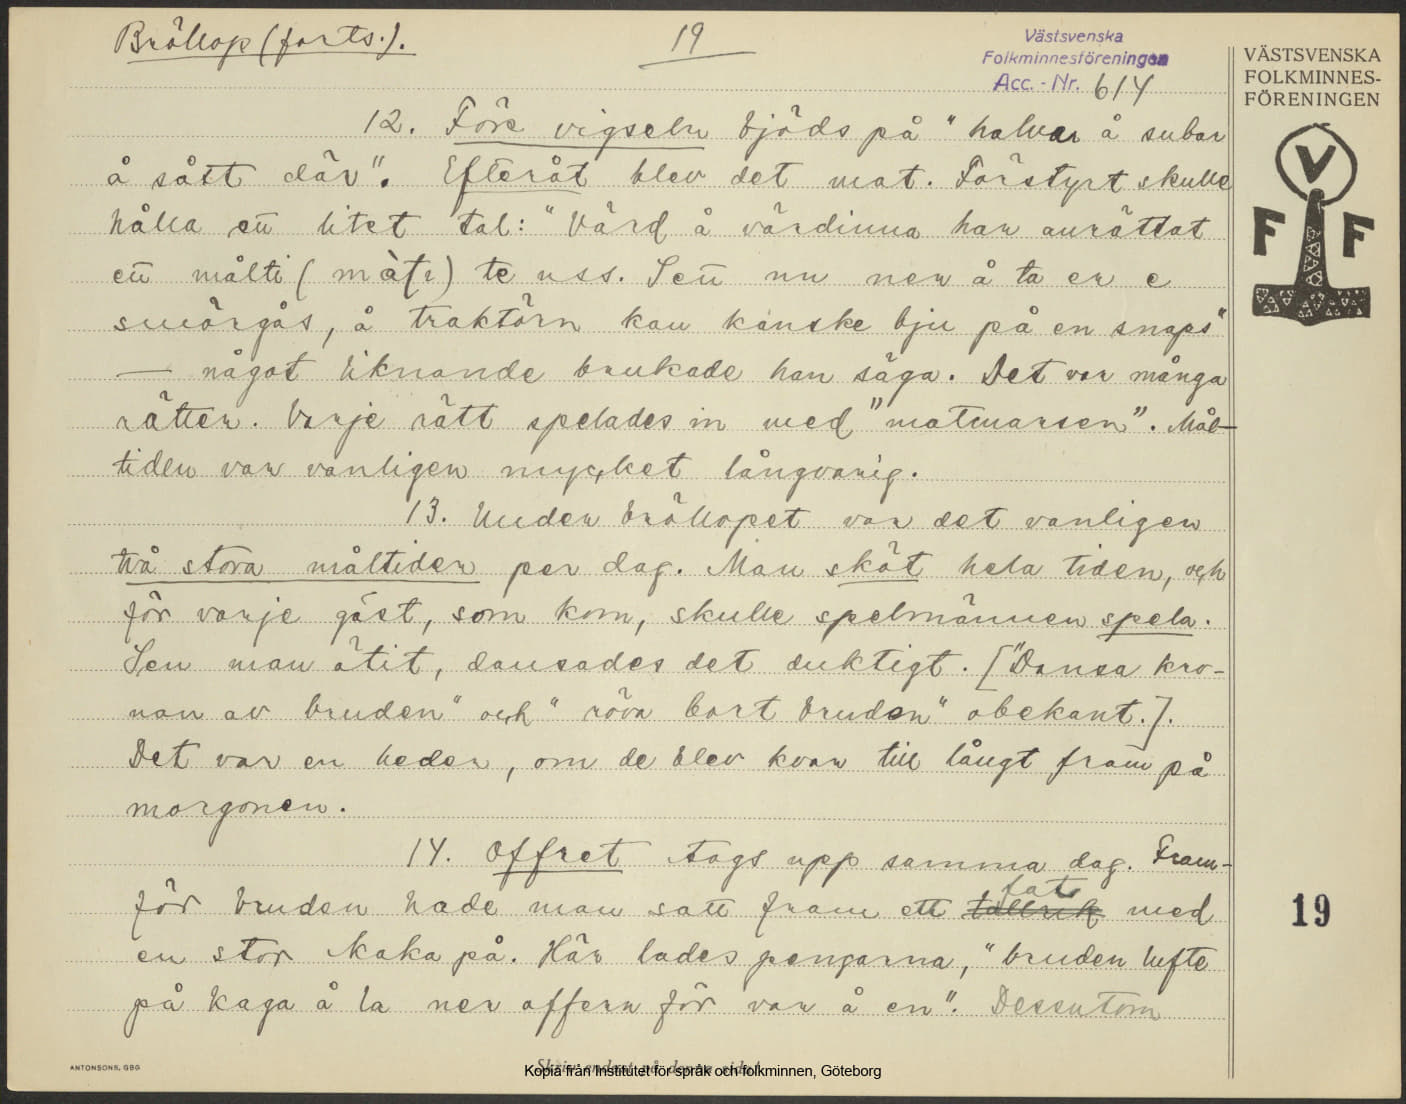 Bröllop (forts.).
19
Västsvenska
Folkminnesföreningen
Acc. - Nr. 614
VÄSTSVENSKA
FOLKMINNES-
FÖRENINGEN
V
F F
12. Före vigseln bjöds på "halvar å subar
å sått där". Efteråt blev det mat. Förstyrt skulle
hålla en litet tal: "Värd å värdinna har anrättat
en målti ( ) te uss. Sen nu ner å ta er e
smörgås, å traktörn kan kanske bju på en snaps"
— något liknande brukade han säga. Det var många
rätter. Varje rätt spelades in med "matmarsen". Mål-
tiden var vanligen mycket långvarig.
13. Under bröllopet var det vanligen
två stora måltider per dag. Man sköt hela tiden, och
för varje gäst, som kom, skulle spelmännen spela.
Sen man ätit, dansades det duktigt. ["Dansa kro-
nan av bruden" och "röva bort bruden" obekant.].
Det var en heder, om de blev kvar till långt fram på
morgonen.
14. Offret togs upp samma dag. Fram-
för bruden hade man satt fram ett tallrik fat med
en stor kaka på. Här lades pengarna, "bruden lefte
på kaga å la ner offern för var å en". Dessutom
19
ANTONSONS, GBG
Skriv endast på denna sida!
Kopia från Institutet för språk och folkminnen, Göteborg